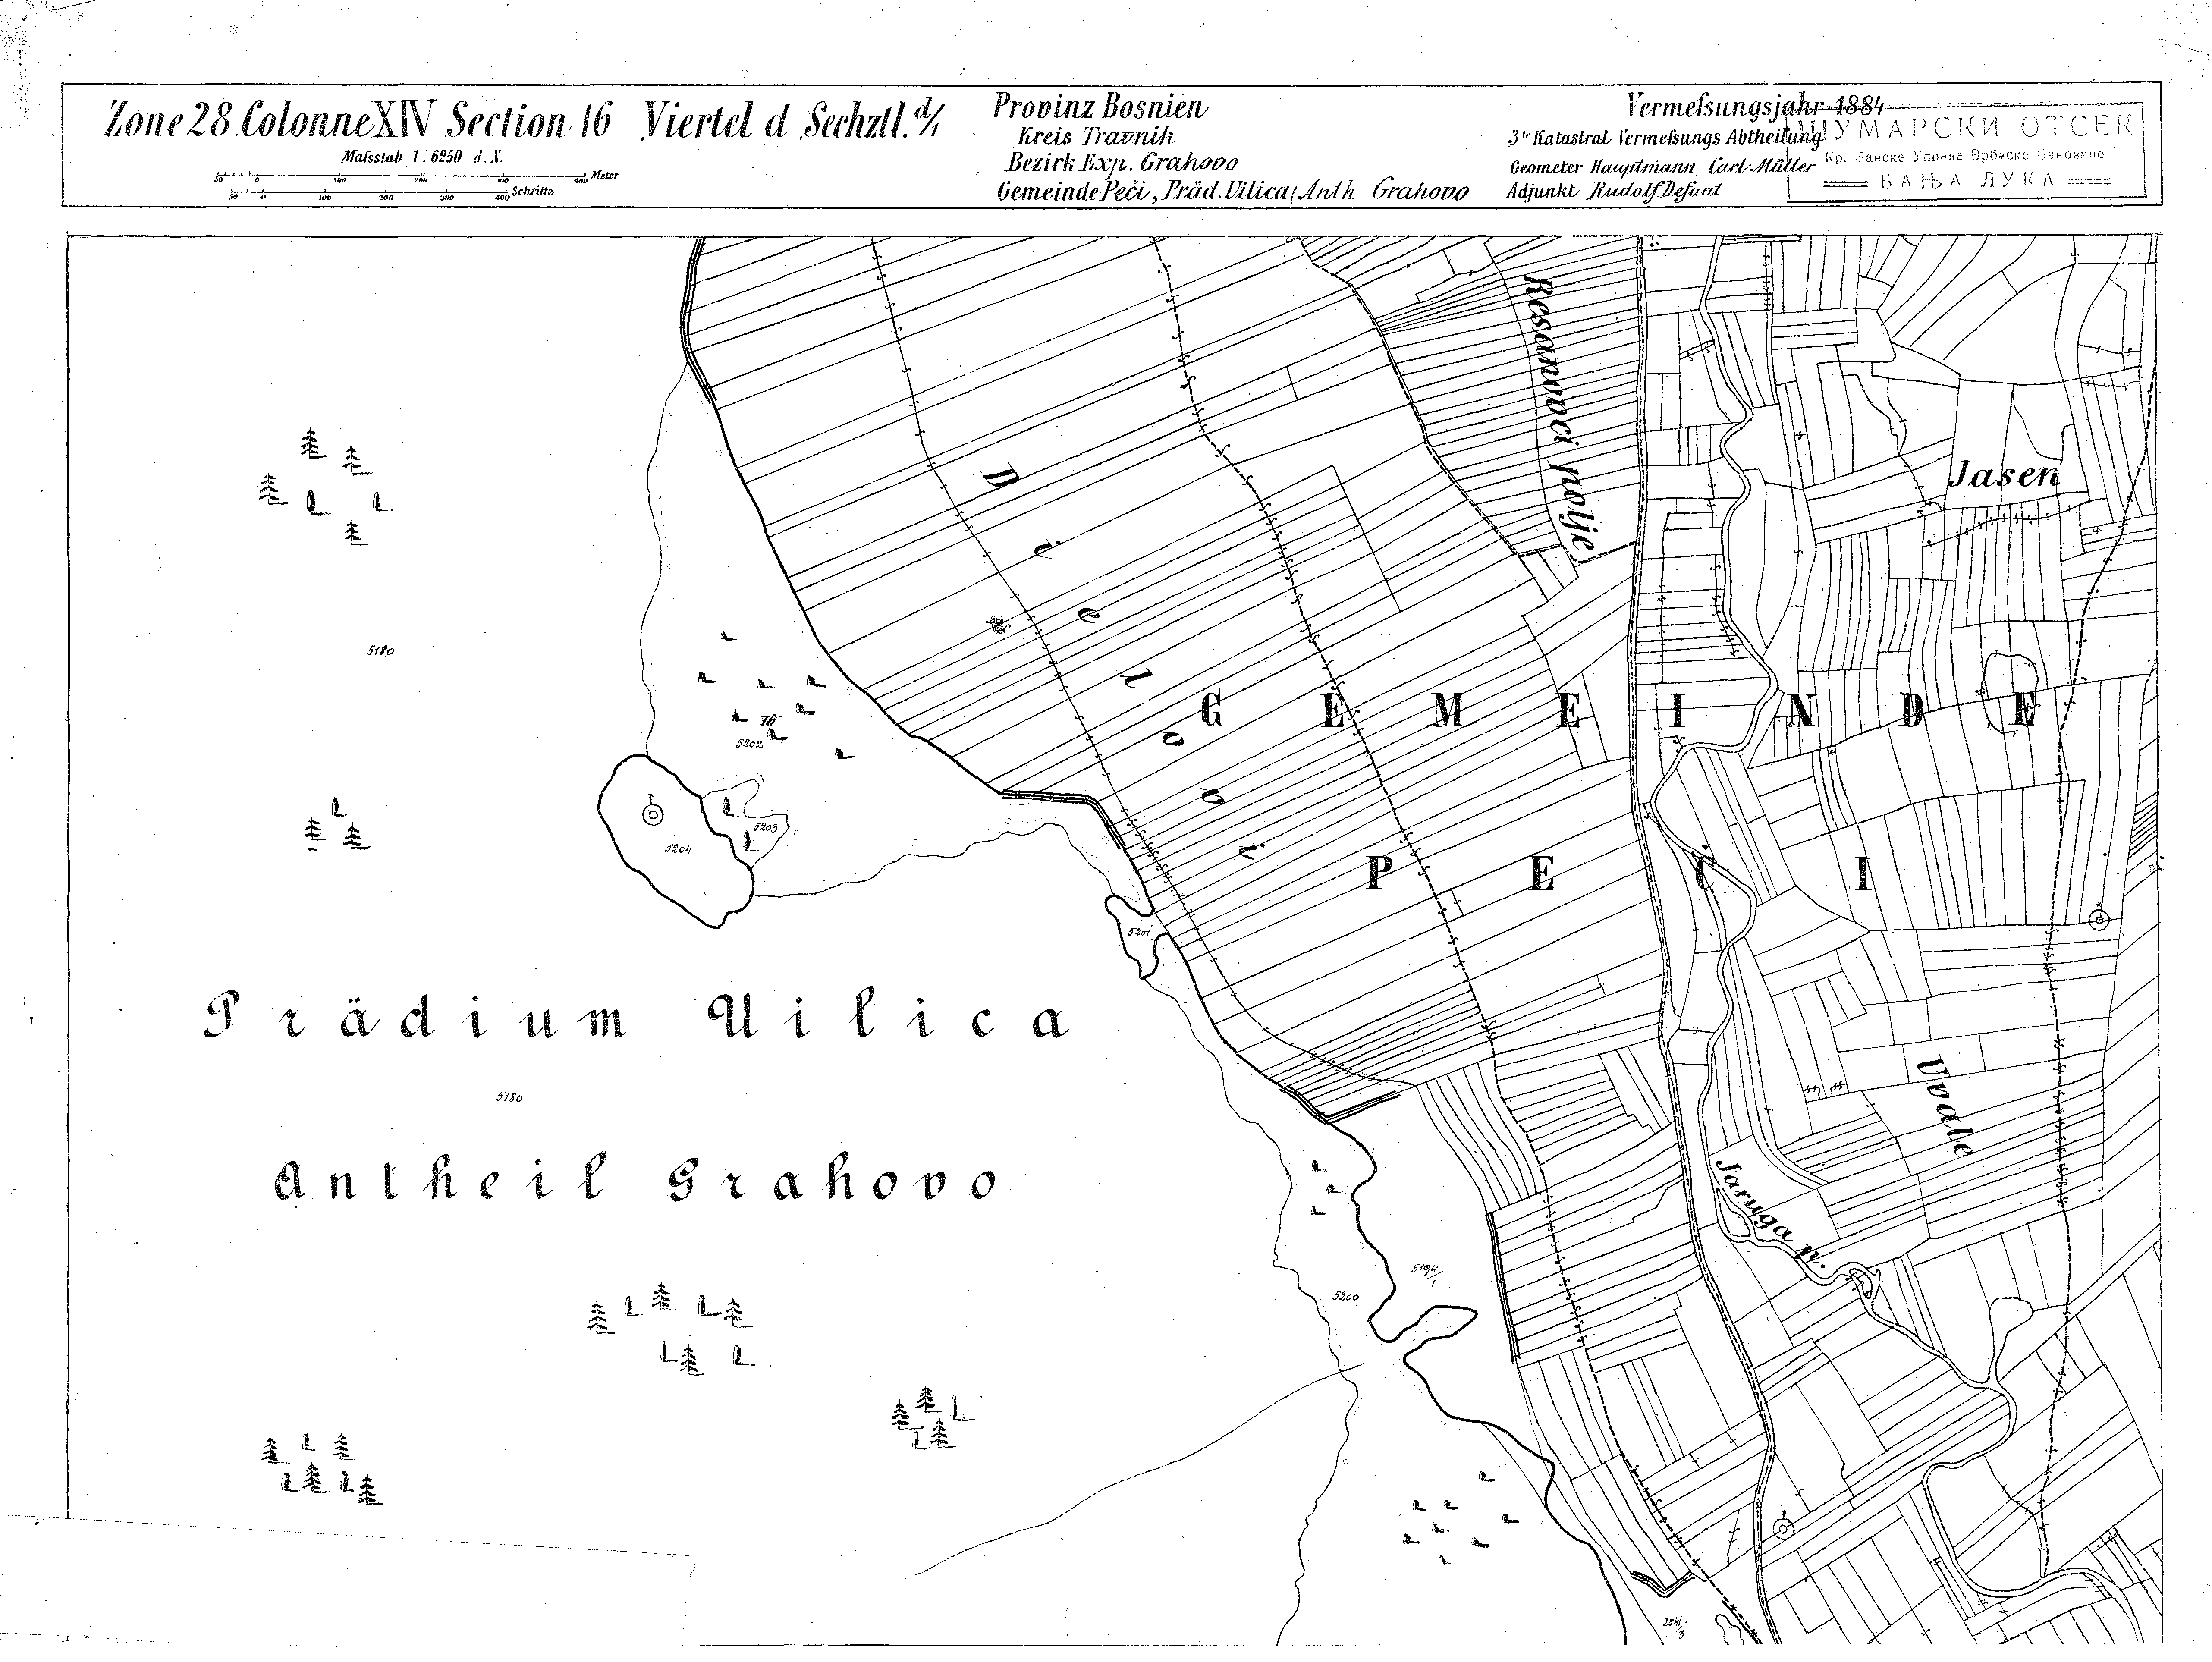 Zone 28. Colonne XIV Section 16 Viertel d Sechztl. d/1
Maſsstab 1:6250 d. N.
50 0 100 200 300 400 Meter
50 0 100 200 300 400 Schritte
Provinz Bosnien
Kreis Travnik
Bezirk Exp. Grahovo
Gemeinde Peči, Präd. Uilica (Anth. Grahovo
Vermeſsungsjahr 1884
3te Katastral Vermeſsungs Abtheilung
Geometer Hauptmann Carl Müller
Adjunkt Rudolf Defant
ШУМАРСКИ ОТСЕК
Кр. Банске Управе Врбаске Бановине
БАЊА ЛУКА
Resanovci polje
Jasen
Dielovi
5180
GEMEINDE
76
5202
5203
5204
PEČI
5201
Prädium Uilica
Uvale
5180
Antheil Grahovo
Jaruga n.
5194/1
5200
2541/3